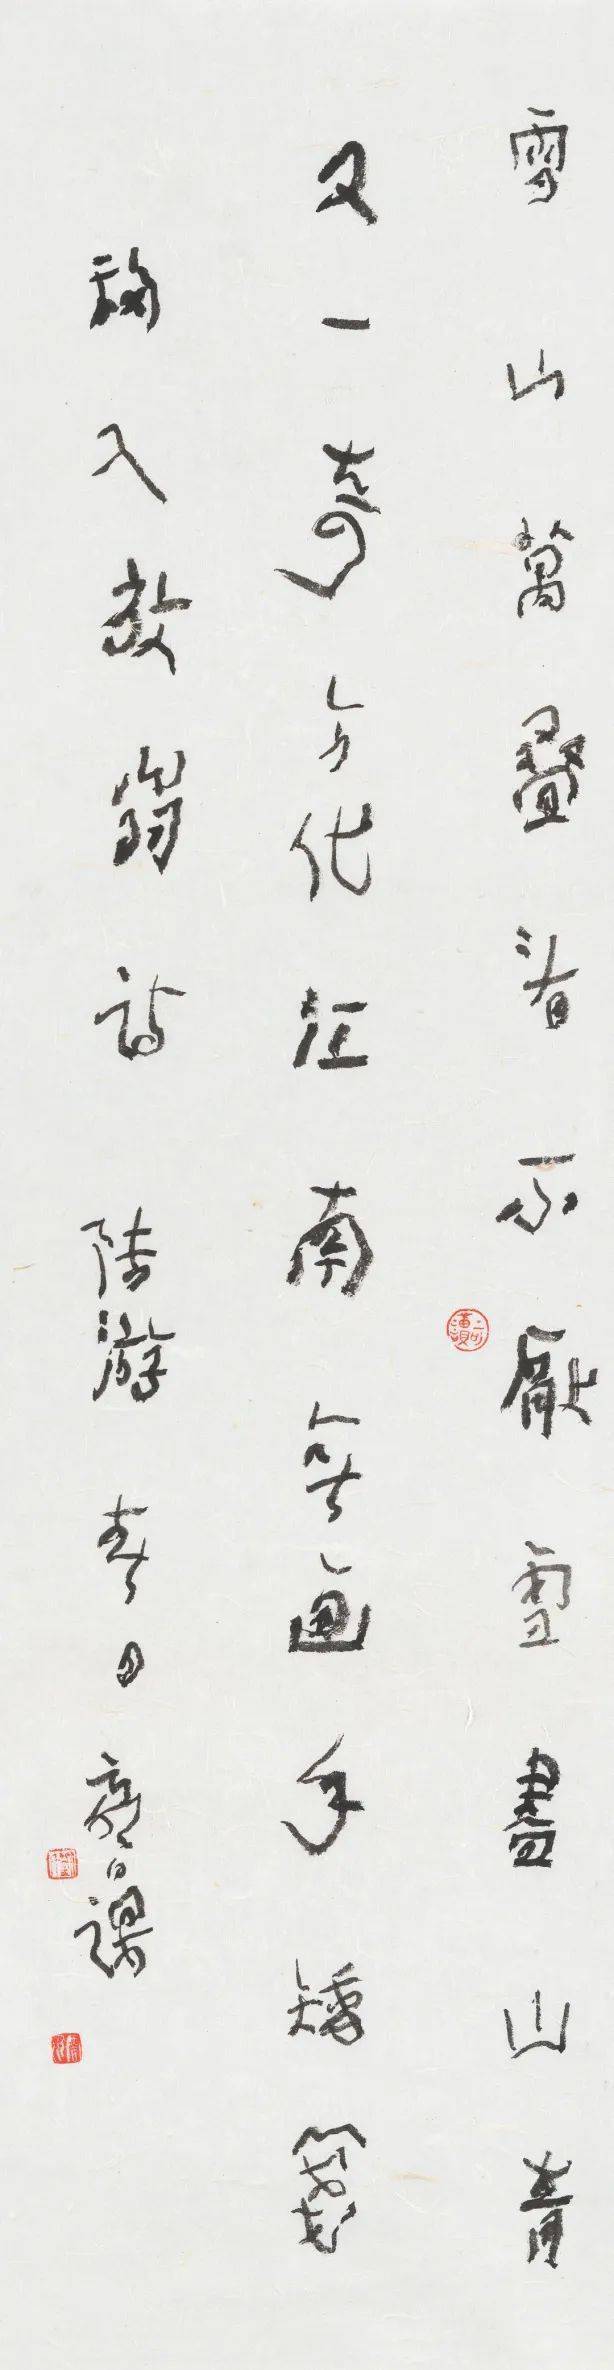 雪山萬疊看不厭雪盡山青
又一奇今代江南無画手矮箋
移入放翁詩 陸游春日